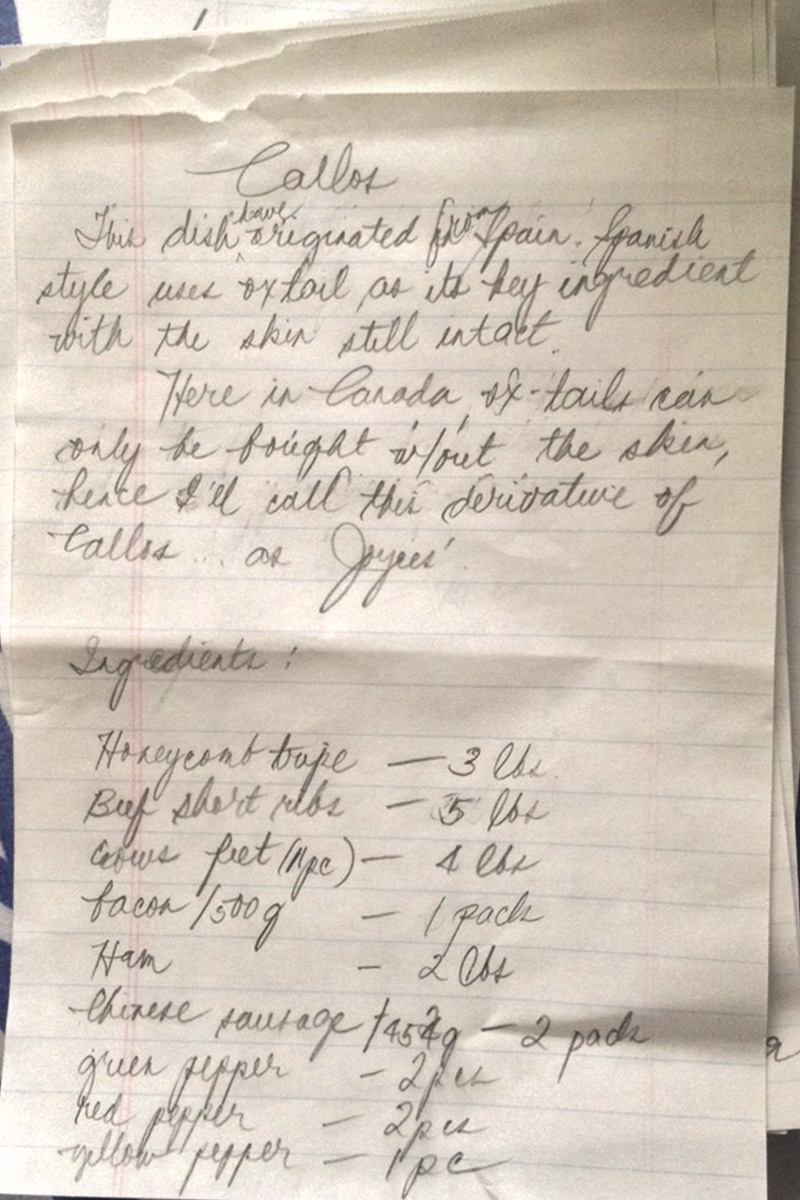 Callos
This dish have originated from Spain. Spanish
style uses oxtail as its key ingredient
with the skin still intact.
Here in Canada, ox-tails can
only be bought w/out the skin,
hence I'll call this derivative of
Callos... as Joyces'
Ingredients:
Honeycomb tripe — 3 lbs.
Beef short ribs — 5 lbs
cows feet (1pc) — 4 lbs
bacon /500g — 1 pack
Ham — 2 lbs
Chinese sausage /454g — 2 pack
green pepper — 2pcs
red pepper — 2pcs
yellow pepper — 1pc